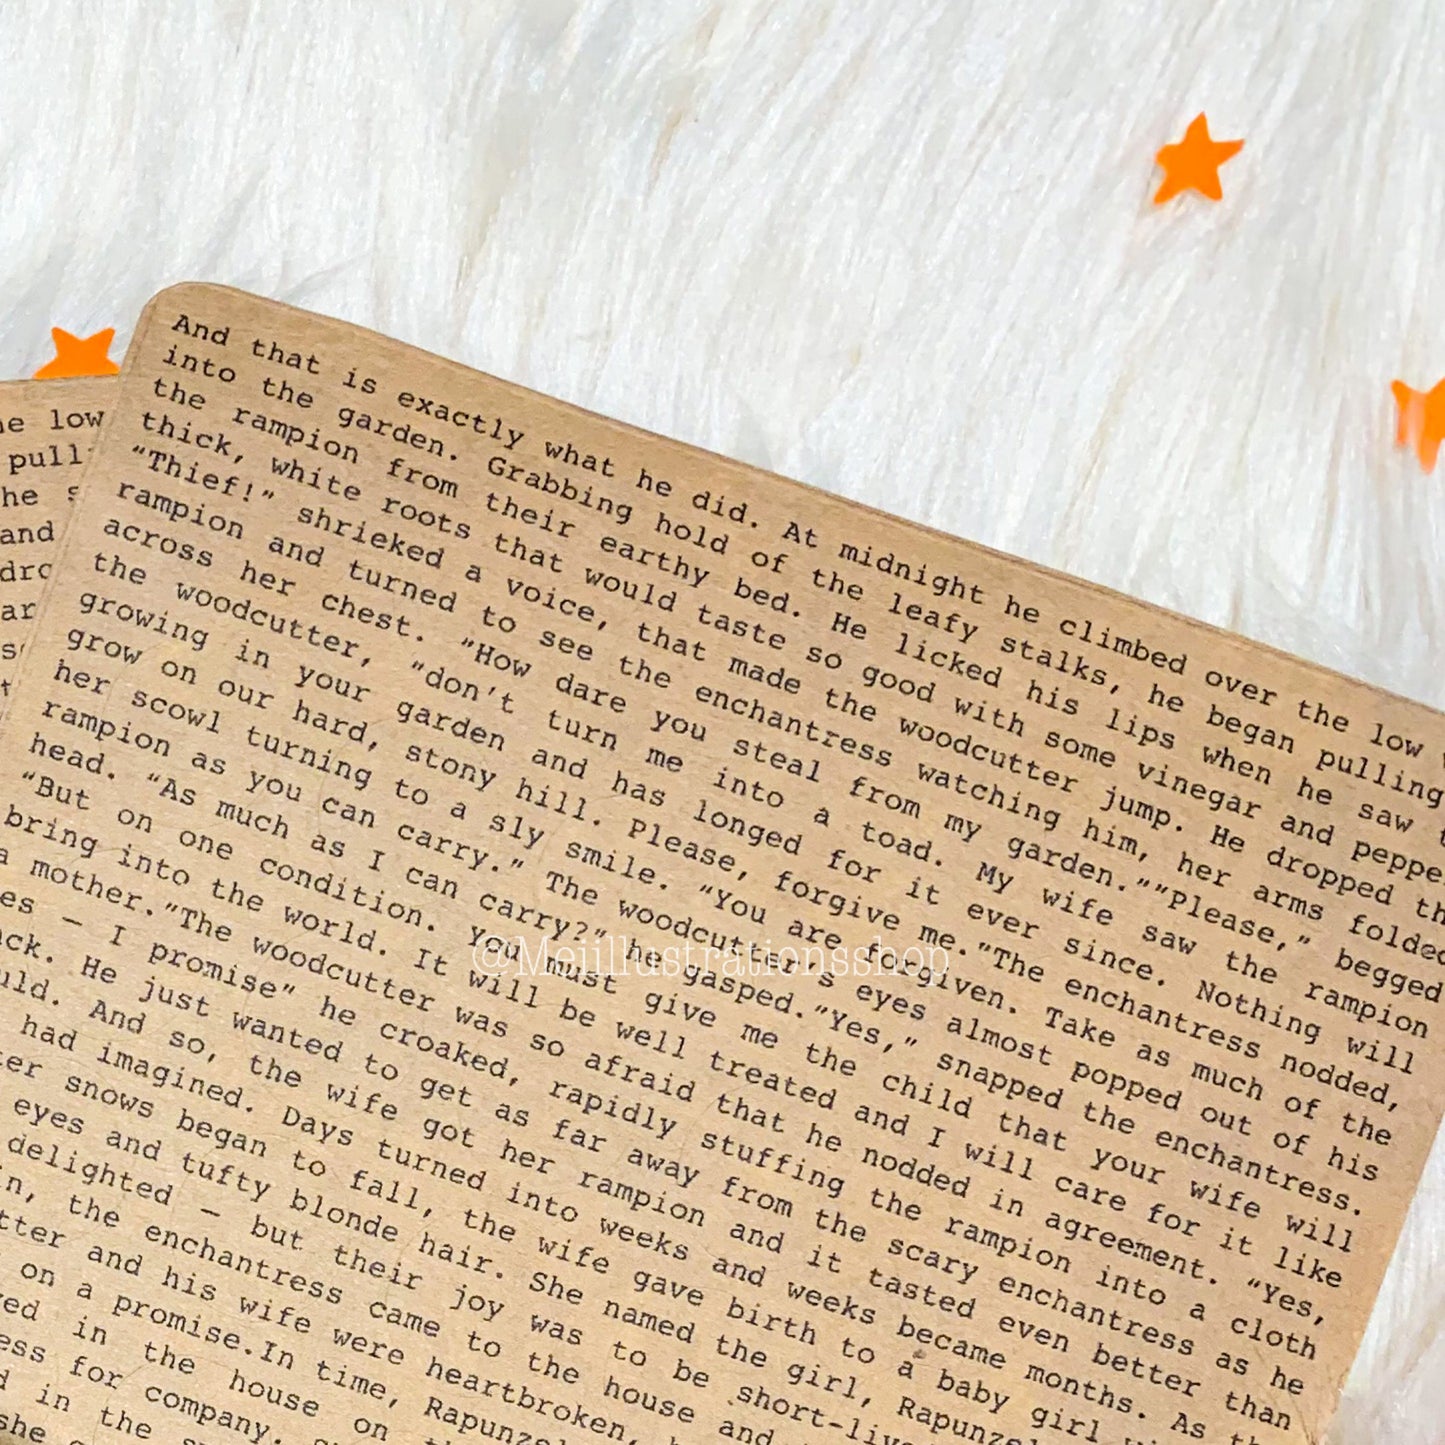 And that is exactly what he did. At midnight he climbed over the low
into the garden. Grabbing hold of the leafy stalks, he began pulling
the rampion from their earthy bed. He licked his lips when he saw t
thick, white roots that would taste so good with some vinegar and peppe
“Thief!” shrieked a voice, that made the woodcutter jump. He dropped th
rampion and turned to see the enchantress watching him, her arms folded
across her chest. “How dare you steal from my garden.”“Please,” begged
the woodcutter, “don’t turn me into a toad. My wife saw the rampion
growing in your garden and has longed for it ever since. Nothing will
grow on our hard, stony hill. Please, forgive me.”The enchantress nodded,
her scowl turning to a sly smile. “You are forgiven. Take as much of the
rampion as you can carry.” The woodcutter’s eyes almost popped out of his
head. “As much as I can carry?” he gasped.“Yes,” snapped the enchantress.
“But on one condition. You must give me the child that your wife will
bring into the world. It will be well treated and I will care for it like
a mother.”The woodcutter was so afraid that he nodded in agreement. “Yes,
es — I promise” he croaked, rapidly stuffing the rampion into a cloth
ack. He just wanted to get as far away from the scary enchantress as he
uld. And so, the wife got her rampion and it tasted even better than
had imagined. Days turned into weeks and weeks became months. As th
ter snows began to fall, the wife gave birth to a baby girl
eyes and tufty blonde hair. She named the girl, Rapunzel
delighted — but their joy was to be short-liv
in, the enchantress came to the house and
tter and his wife were heartbroken,
on a promise.In time, Rapunzel
ved in the house on
ess for company.
d in the
she
e low
pull
he s
and
dro
ar
@Meiillustrationsshop